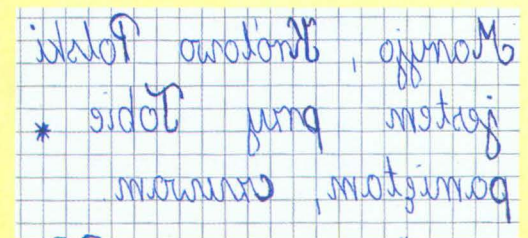 Maryjo, Królowo Polski
jestem przy Tobie *
pamiętam, czuwam.